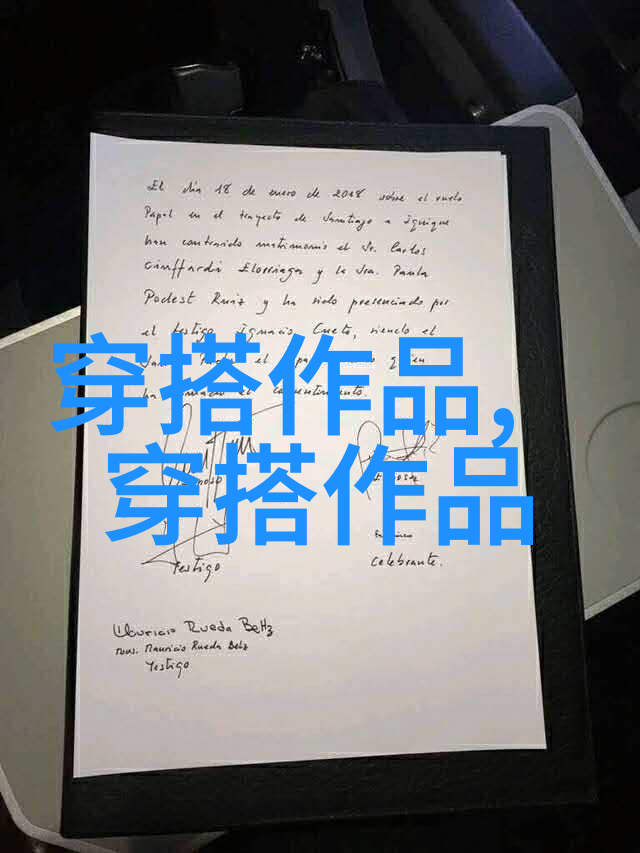 El día 18 de enero de 2018 sobre el vuelo
Papal en el trayecto de Santiago a Iquique
han contraido matrimonio el Sr. Carlos
Ciuffardi Elorriaga y la Sra. Paula
Podest Ruiz y ha sido presenciado por
el testigo Ignacio Cueto, siendo el
穿搭作品,
穿搭作品
el consentimiento.
Testigo
Celebrante.
Mauricio Rueda Beltz
Mons. Mauricio Rueda Beltz
Testigo